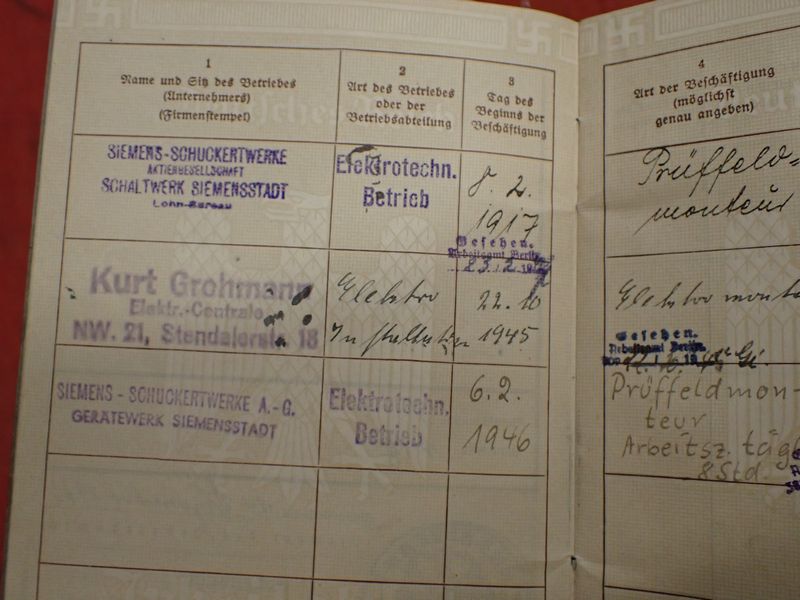 1
Name und Sitz des Betriebes
(Unternehmers)
(Firmenstempel)
2
Art des Betriebes
oder der
Betriebsabteilung
3
Tag des
Beginns der
Beschäftigung
4
Art der Beschäftigung
(möglichst
genau angeben)
SIEMENS-SCHUCKERTWERKE
AKTIENGESELLSCHAFT
SCHALTWERK SIEMENSSTADT
Lohn-Bureau
Elektrotechn.
Betrieb
8. 2.
1917
Prüffeld-
monteur
Gesehen.
Arbeitsamt Berlin
Kurt Grohmann
Elektr.-Centrale
NW. 21, Stendalerstr. 18
Elektro
Installation
22. 10
1945
Elektromonte
Gesehen.
Arbeitsamt Berlin.
SIEMENS - SCHUCKERTWERKE A.-G.
GERÄTEWERK SIEMENSSTADT
Elektrotechn.
Betrieb
6. 2.
1946
Prüffeldmon-
teur
Arbeitsz. tägl
8 Std.